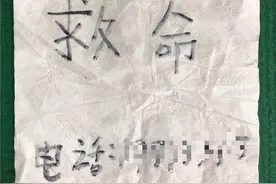 救命
电话: